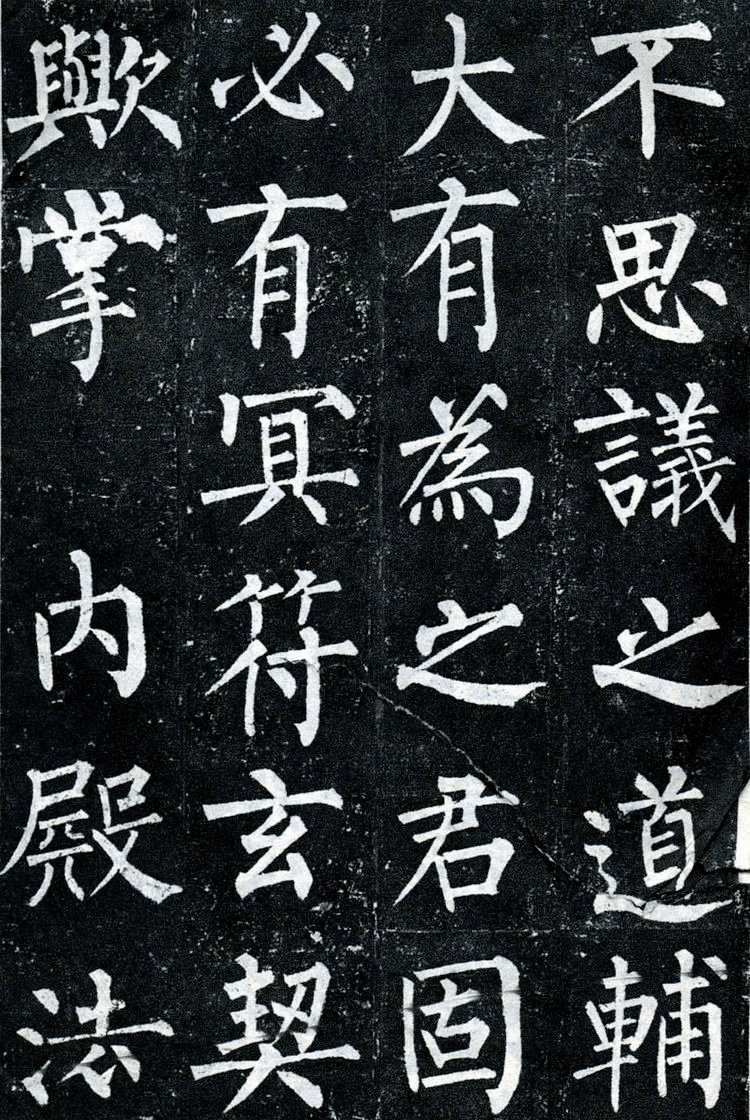 不思議之道輔
大有為之君固
必有冥符玄契
歟掌 内殿法